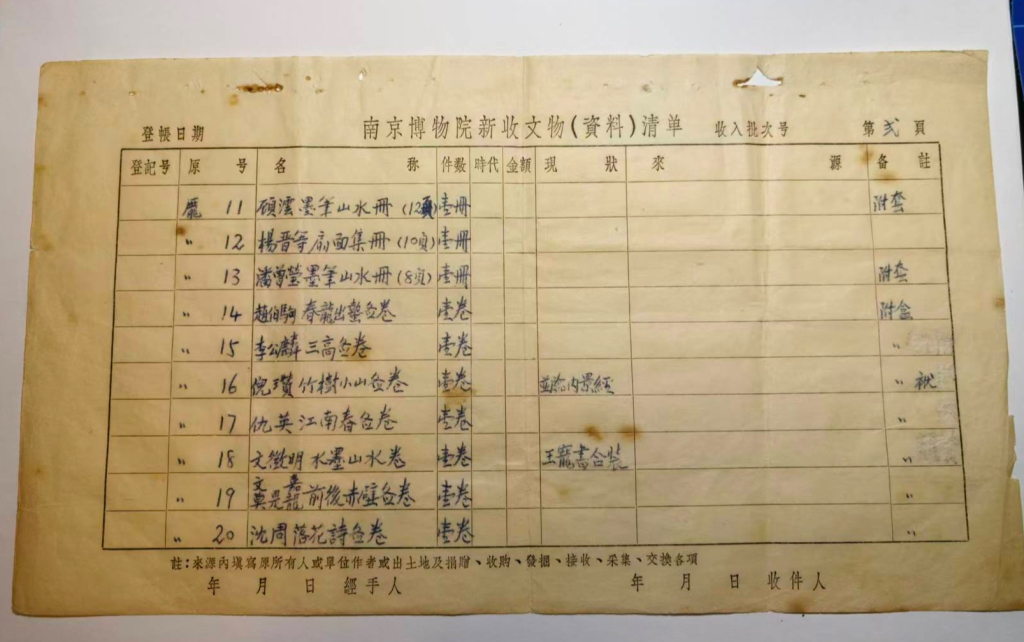 南京博物院新收文物(資料)清单
登帳日期 收入批次号 第弍頁
登記号 原号 名称 件数 時代 金額 現狀 來源 备註
龐 11 顾澐墨笔山水册(12頁) 壹册 附套
〃 12 楊晋等扇面集册(10頁) 壹册
〃 13 潘曾瑩墨笔山水册(8頁) 壹册 附套
〃 14 趙伯驹春龍出蟄图卷 壹卷 附盒
〃 15 李公麟三高图卷 壹卷 〃
〃 16 倪瓚竹樹小山图卷 壹卷 内景經 〃
〃 17 仇英江南春图卷 壹卷 〃
〃 18 文徵明水墨山水卷 壹卷 王寵書合裝 〃
〃 19 文嘉 莫是龍前後赤壁图卷 壹卷 〃
〃 20 沈周落花詩图卷 壹卷 〃
註:來源內填寫原所有人或單位作者或出土地及捐贈、收购、發掘、接收、采集、交換各項
年 月 日 經手人 年 月 日 收件人